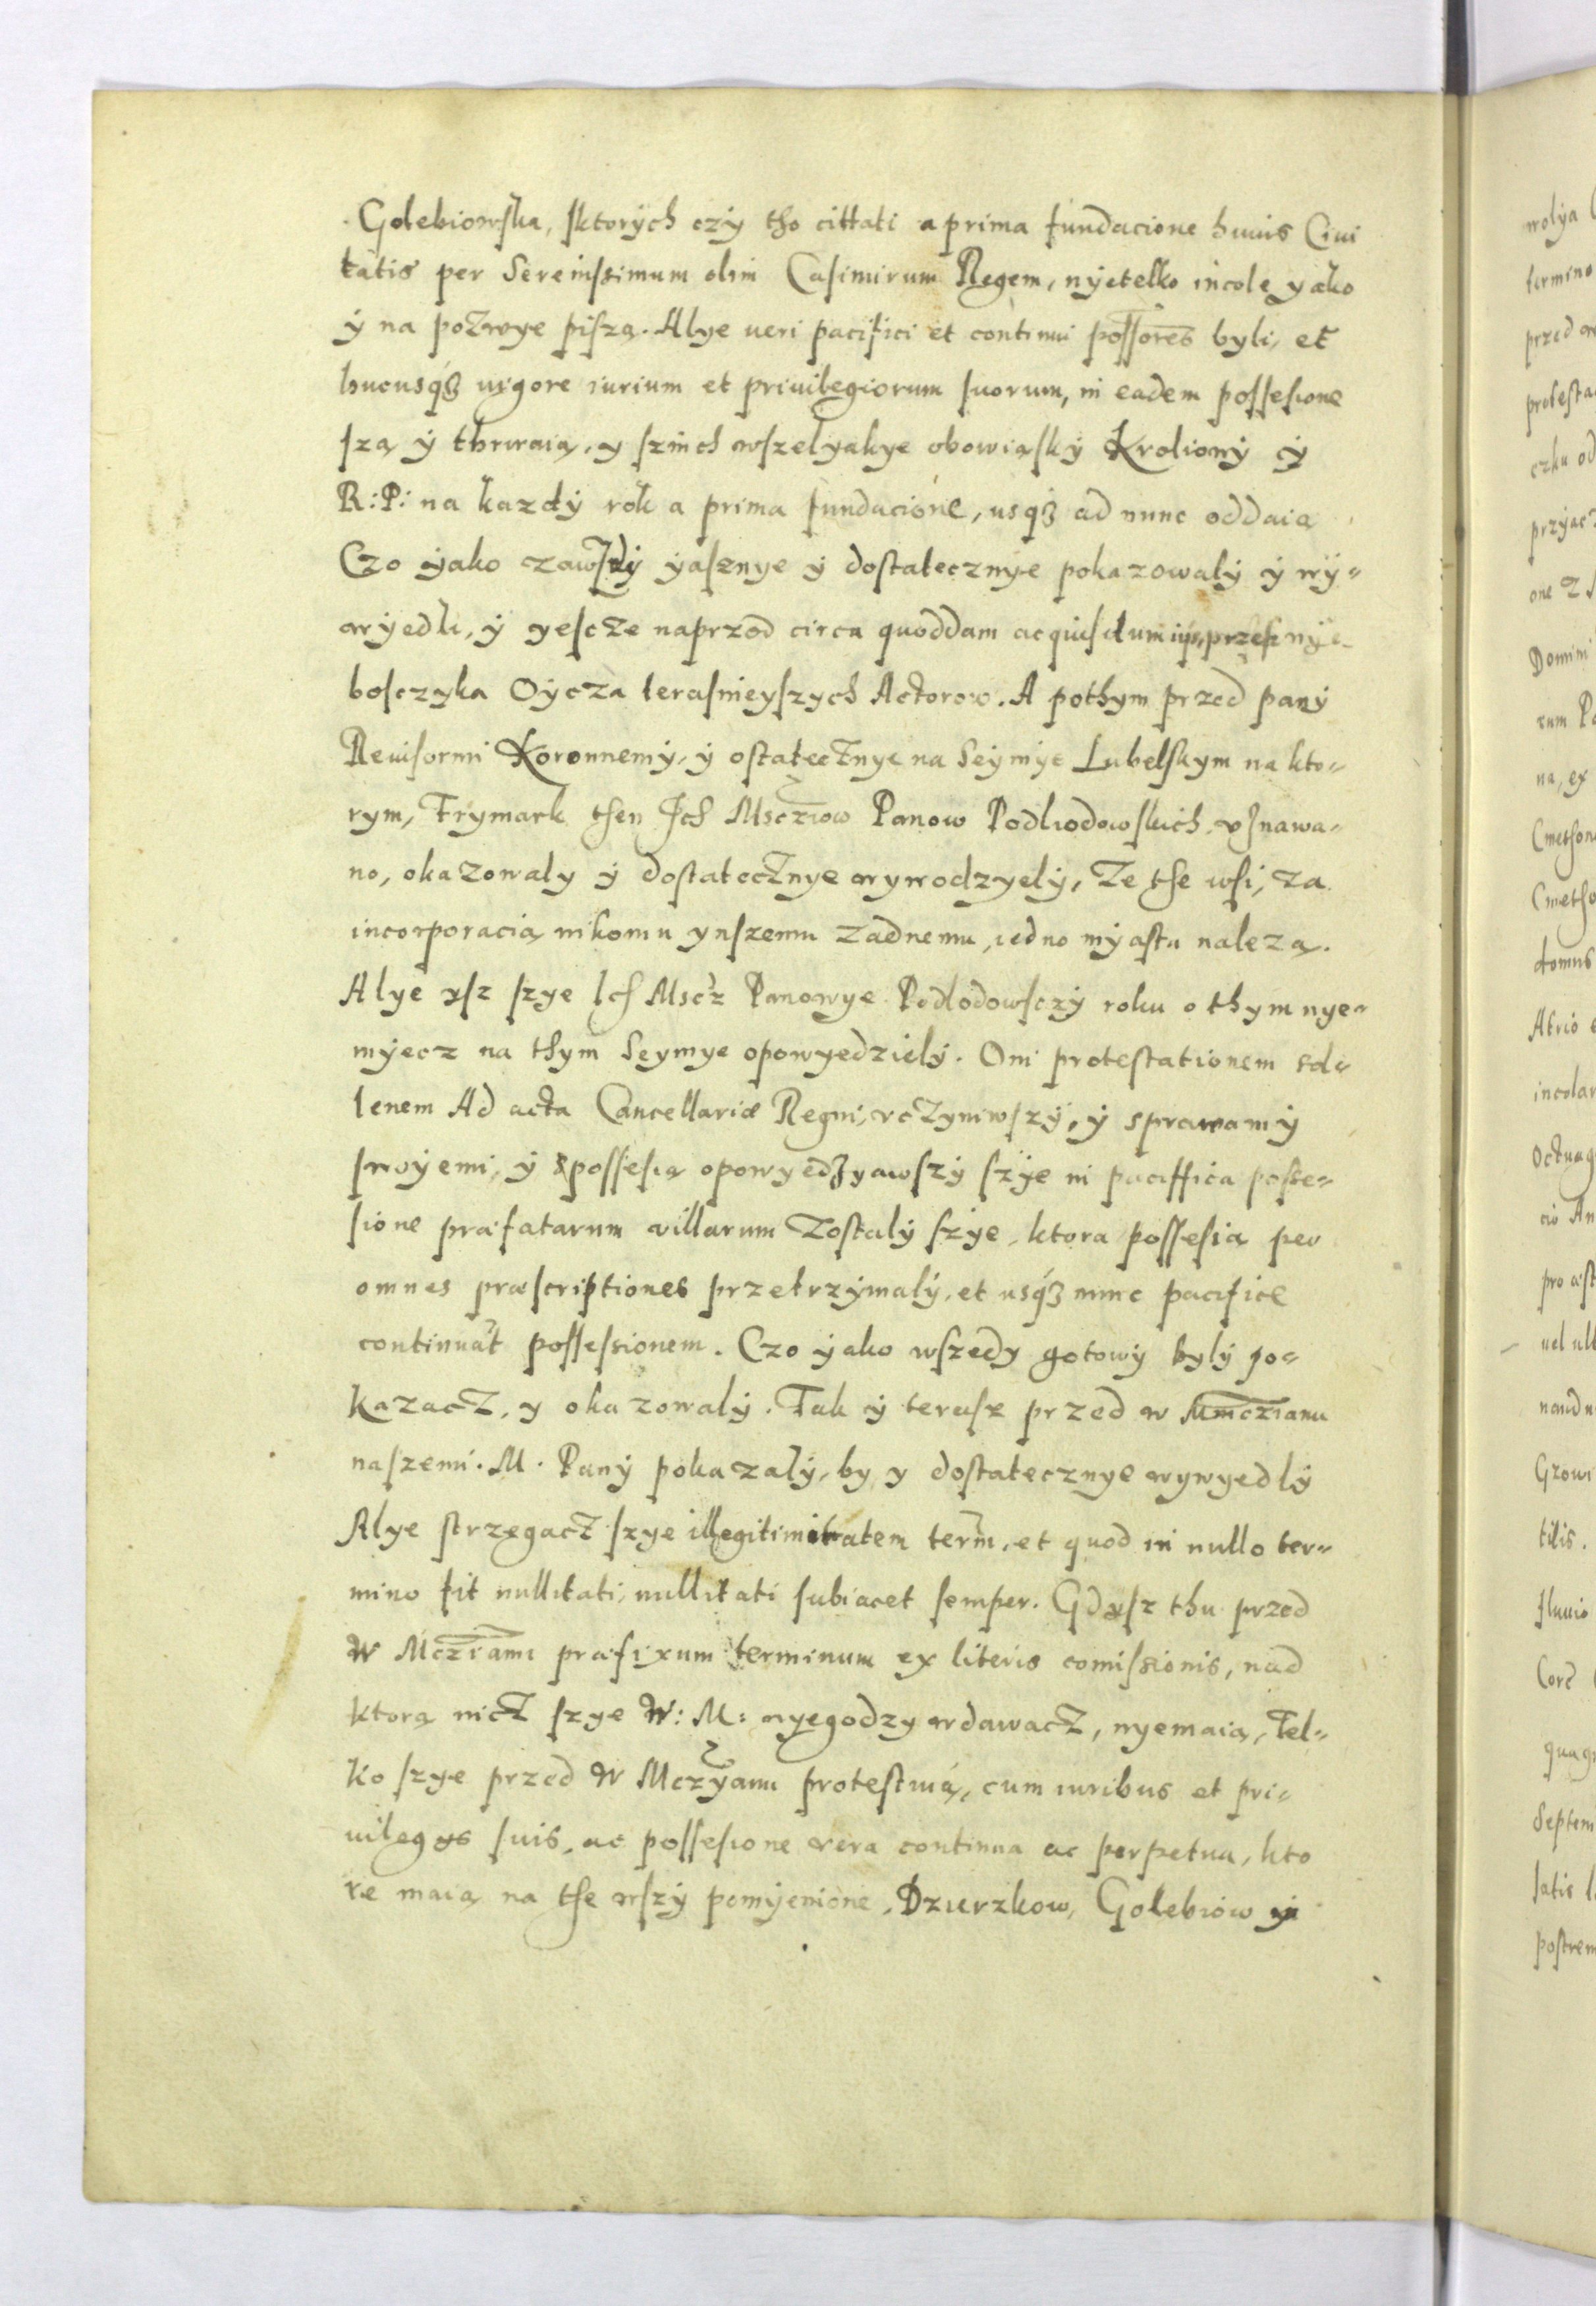 Golebiowska, sktorÿch czÿ tho cittati a prima fundacione huius Ciui
tatis per Sereinssimum olim Casimirum Regem, nÿetelko incole yako
ÿ na pozwye piszą. Alye ueri pacifici et continui possores byli, et
hucusqz uigore iurium et priuilegiorum suorum, in eadem possesione
szą ÿ thrwaią, y sznich wszelyakye obowiąskÿ Krolionÿ ÿ
R: P: na kazdÿ rok a prima fundacione, usqz ad nunc oddaią
Czo ÿako zawszdÿ ÿasznye ÿ dostatecznÿe pokazowalÿ ÿ wÿ=
wÿedli, ÿ yescze naprzod circa quoddam acquisitum ius, przesz nÿe
bosczyka Oÿcza terasnieyszych Actorow. A pothym przed panÿ
Reuisormi Koronnemÿ, ÿ ostatecznye na Seÿmÿe Lubelskym na kto=
rym, Frymark then Ich Mscziow Panow Podliodowskich vznawa=
no, okazowaly ÿ dostatecznye wywodzyelÿ, Ze the wsi, za
incorporacią nikomu ynszemu zadnemu, iedno mÿastu naleza.
Alye ysz szye Ich Mscz Panowye Podlodowsczÿ roku o thym nye=
mÿecz na thym Seymye opowyedzielÿ. Oni protestationem sole=
lenem Ad acta Cancellariæ Regni, vcżyniwszÿ, ÿ sprawamÿ
swoÿemi, ÿ possesią opowyedzyawszÿ szÿe in paciffica posse=
sione præfatarum villarum Zostalÿ szÿe, ktora possesia per
omnes præscriptiones przetrzÿmalÿ, et usqz nunc pacifice
continuat possessionem. Czo ÿako wszedy gotowÿ bylÿ po=
kazacz, y okazowalÿ. Tak ÿ terasz przed w Mmcziami
naszemi. M. Panÿ pokazalÿ, by y dostatecznye wywyedlÿ
Alye strzegacz szye illegitimitatem term, et quod in nullo ter=
mino fit nullitati, nullitati subiacet semper. Gdysz thu przed
W Mcziami præfixum terminum ex literis comissionis, nad
ktorą nicz szye W: M: nyegodzy wdawacz, nyemaią, Tel=
ko szye przed W Mczyami protestuią, cum iuribus et pri=
uilegys suis, ac possesione vera continua ac perpetua, kto
re maią na the wszÿ pomÿenione, Dzierzkow, Golebiow ÿ